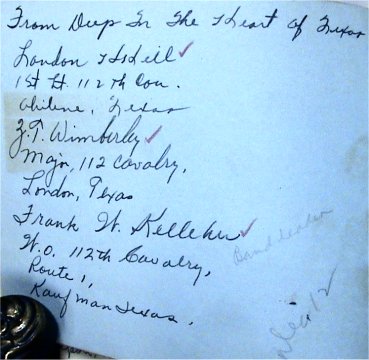 From Deep In The Heart of Texas
London H Hill
1st Lt. 112th Cav.
Abilene, Texas
Z.T. Wimberley
Major, 112 Cavalry,
London, Texas
Frank W. Kelleher
W.O. 112th Cavalry,
Route 1,
Kaufman Texas.
Band leader